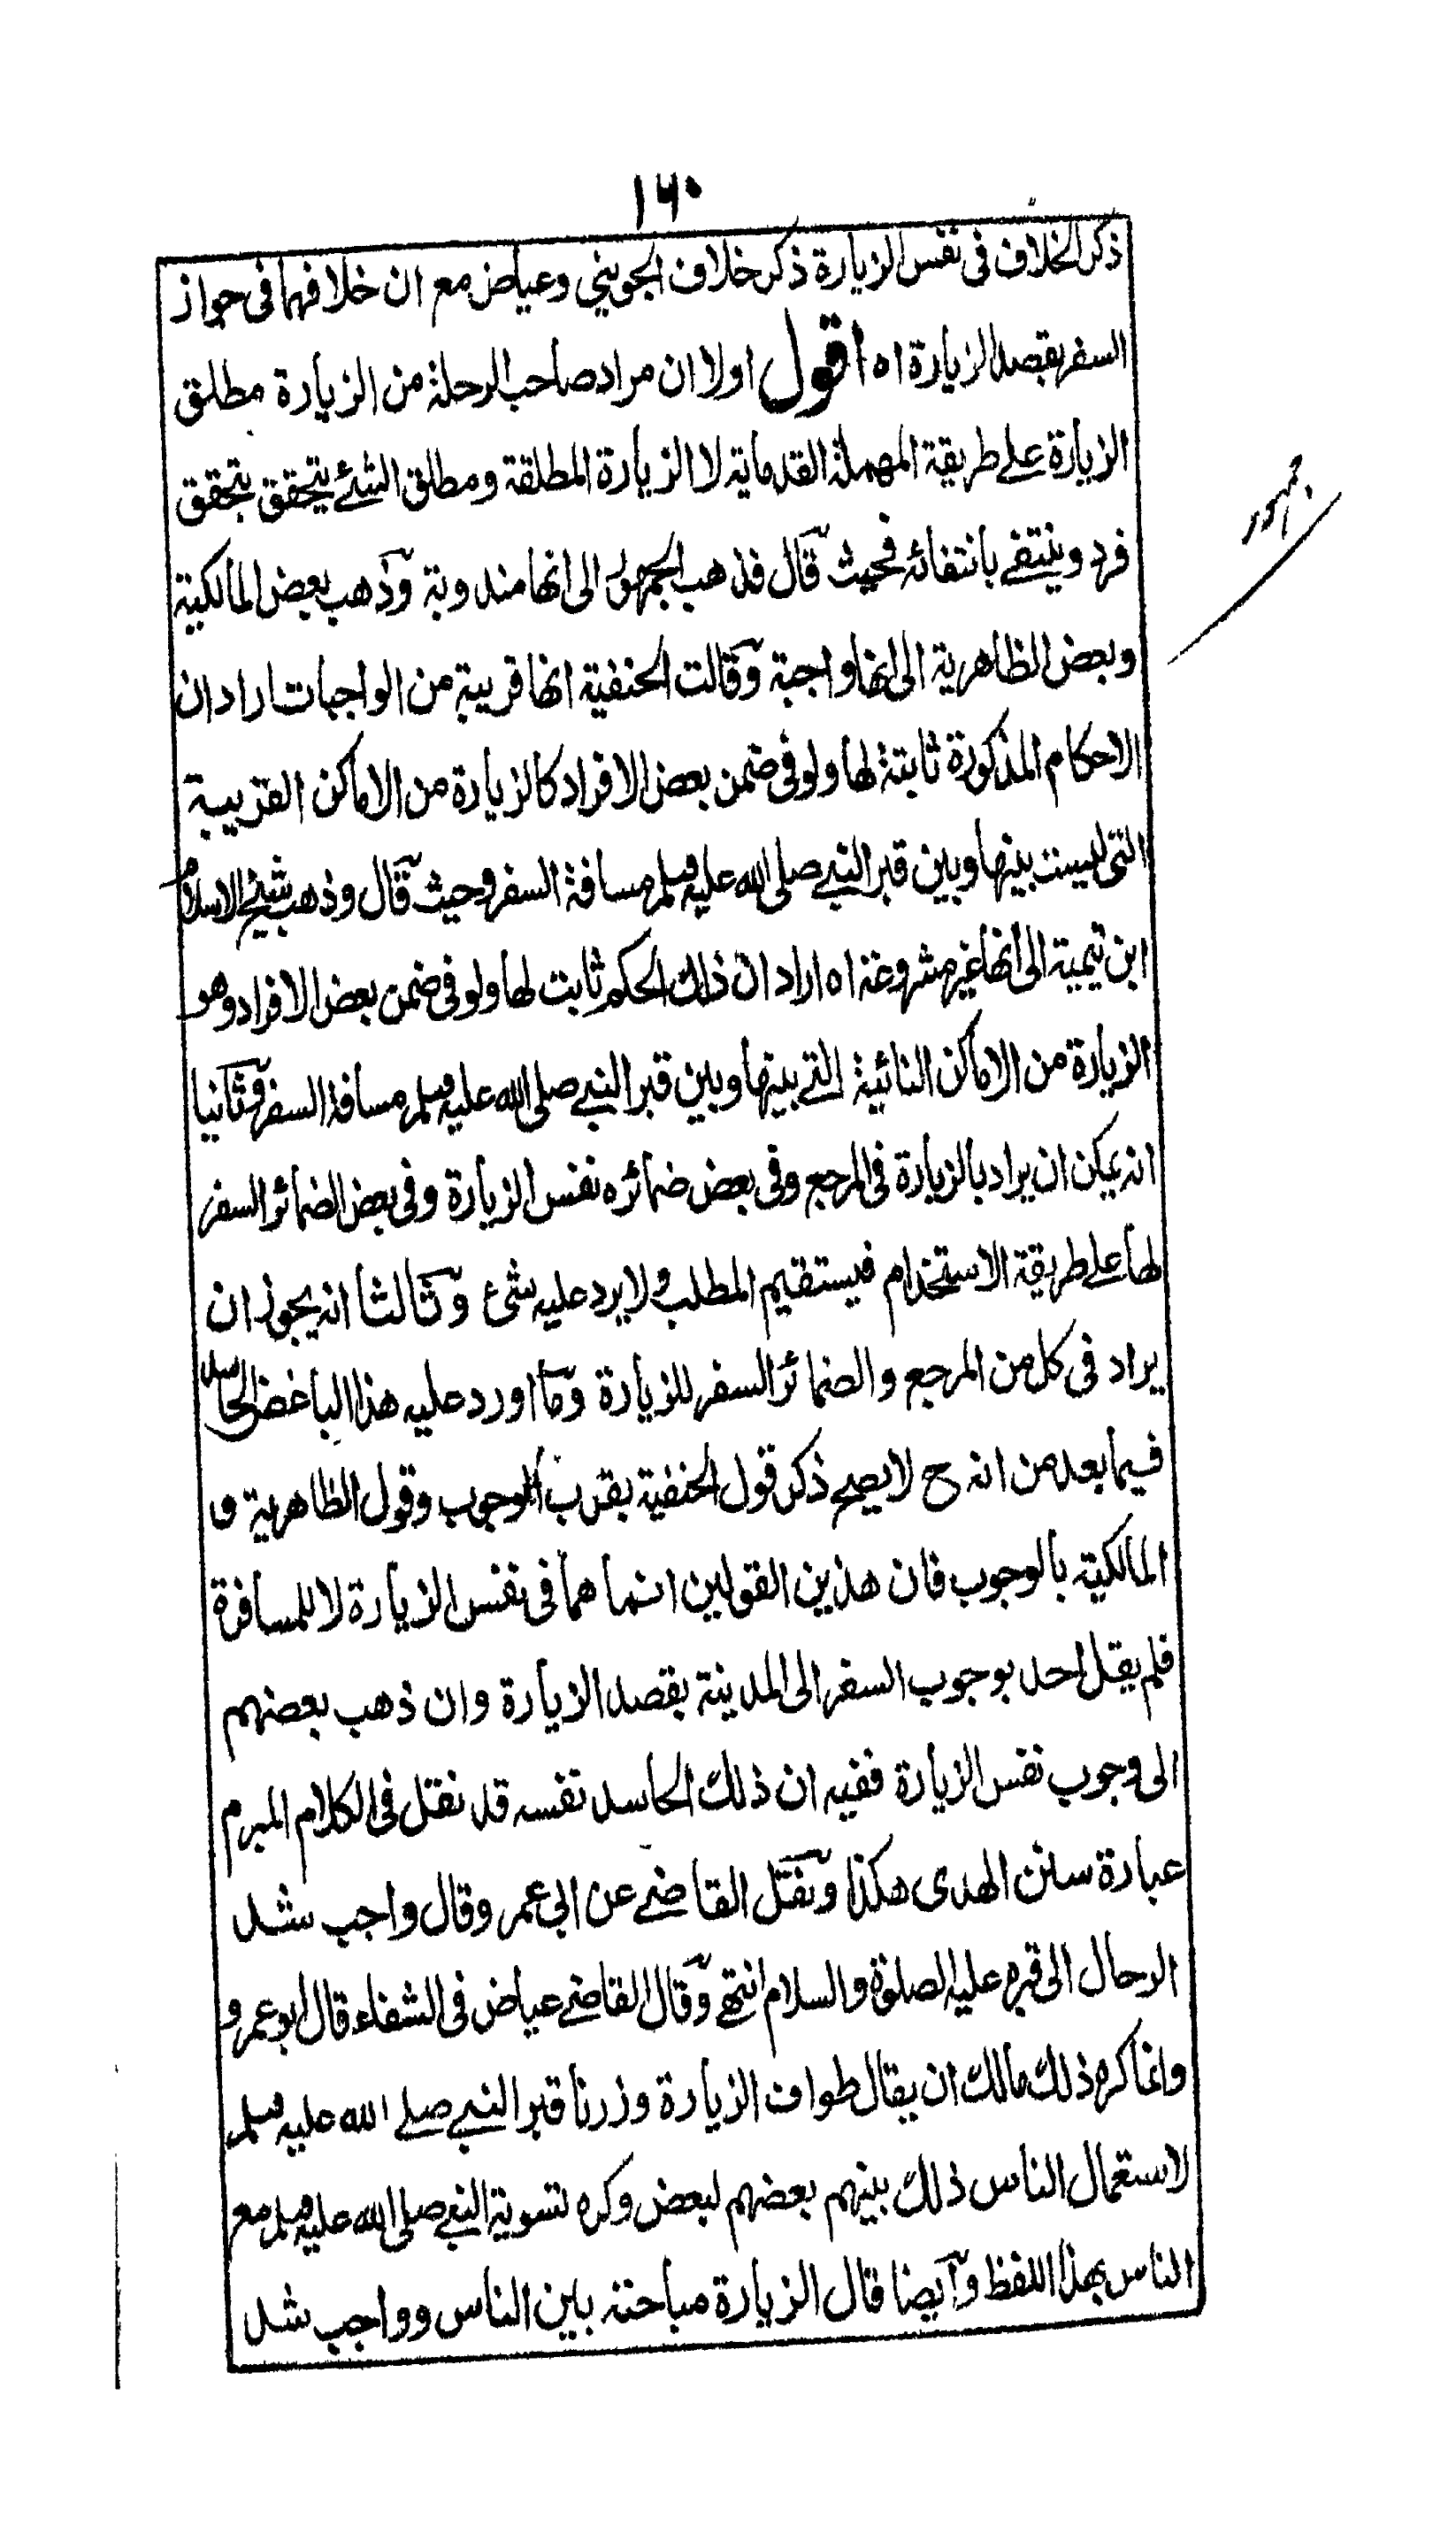 ١٦٠
ذكر الخلاف فى نفس الزيارة ذكر خلاف الجويني وعياض مع ان خلافهما فى جواز
السفر بقصد الزيارة اه اقول اولا ان مراد صاحب الرحلة من الزيارة مطلق
الزيارة على طريقة المهملة القدمائية لا الزيارة المطلقة ومطلق الشئ يتحقق بتحقق
فرد وينتفے بانتفائه فحيث قال فذهب الجمهور الى انها مندوبة وذهب بعض المالكية
وبعض الظاهرية الى انها واجبة وقالت الحنفية انها قريبة من الواجبات اراد ان
الاحكام المذكورة ثابتة لها ولو فى ضمن بعض الافراد كالزيارة من الاماكن القريبة
التى ليست بينها وبين قبر النبے صلى الله عليه وسلم مسافة السفر وحيث قال وذهب شيخ الاسلام
ابن تيمية الى انها غير مشروعة اه اراد ان ذلك الحكم ثابت لها ولو فى ضمن بعض الافراد وهو
الزيارة من الاماكن النائية التے بينها وبين قبر النبے صلى الله عليه وسلم مسافة السفر وثانيا
انه يمكن ان يراد بالزيارة فى المرجع وفى بعض ضمائره نفس الزيارة وفى بعض الضمائر السفر
لها على طريقة الاستخدام فيستقيم المطلب ولا يرد عليه شئ وثالثا انه يجوز ان
يراد فى كل من المرجع والضمائر السفر للزيارة وما اورد عليه هذا الباغض الحاسد
فيما بعد من انه ح لا يصح ذكر قول الحنفية بقرب الوجوب وقول الظاهرية و
المالكية بالوجوب فان هذين القولين انما هما فى نفس الزيارة لا للمسافرة
فلم يقل احد بوجوب السفر الى المدينة بقصد الزيارة وان ذهب بعضهم
الى وجوب نفس الزيارة ففيه ان ذلك الحاسد نفسه قد نقل فى الكلام المبرم
عبارة سنن الهدى هكذا ونقل القاضے عن ابي عمر وقال واجب شد
الرحال الى قبره عليه الصلوة والسلام انتهے وقال القاضے عياض فى الشفاء قال ابو عمر و
وانما كره ذلك مالك ان يقال طواف الزيارة وزرنا قبر النبے صلے الله عليه وسلم
لاستعمال الناس ذلك بينهم بعضهم لبعض وكره تسوية النبے صلى الله عليه وسلم مع
الناس بهذا اللفظ وايضا قال الزيارة مباحة بين الناس وواجب شد
جمهور